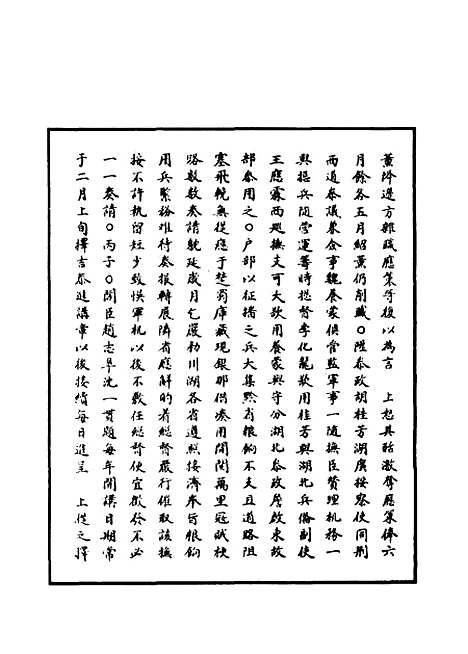 薰降邊方雜職應策等復以為言　上怒其聒激奪應策俸六
月餘各五月紹薰仍削職○陞叅政胡桂芳湖廣按察使同荆
西道叅議兼僉事魏養蒙俱當監軍事一隨撫臣贊理机務一
與提兵隨營運籌時揔督李化龍欲用桂芳與湖北兵偹副使
王應霖而廵撫支可大欲用養蒙與守分湖北叅政詹啟東故
部叅用之○户部以征播之兵大集黔省粮餉不支且道路阻
塞飛輓無從應于楚蜀庫藏現銀那借湊用閩閩萬里冠賊梗
路數數奏請躭延歲月乞屢勑川湖各省遵照接濟奉旨粮餉
用兵緊務难待奏報轉展隣省應解的着揔督嚴行催取該撫
按不許执留短少致悮軍机以後不敷任總督便宜徴發不必
一一奏請○丙子○閣臣趙志皐沈一貫題每年開講日期常
于二月上旬擇吉恭進講章以後接續每日進呈　上從之擇